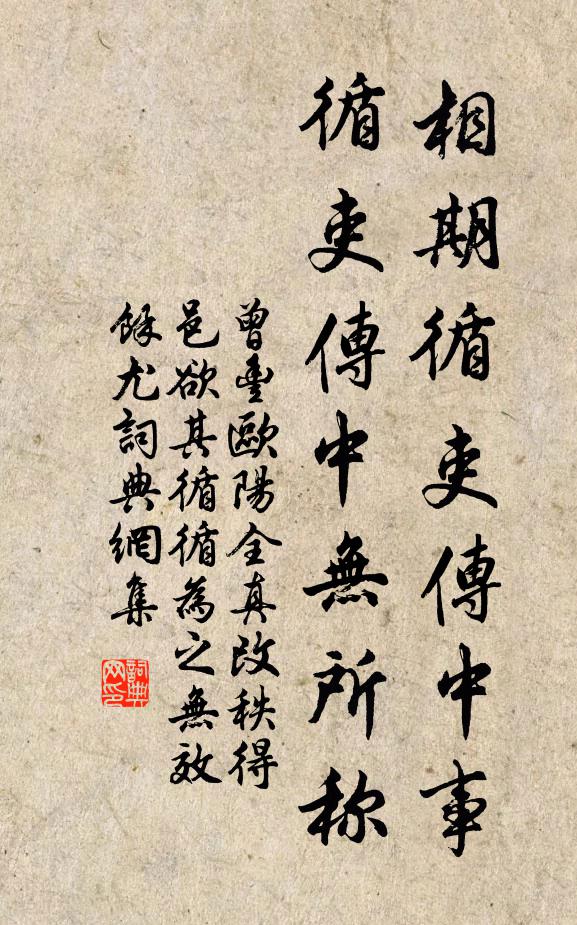 相期循吏傳中事
循吏傳中無所称
曾豊歐陽全真改秩得
邑欲其循循為之無效
餘尤詞典網集
詞典网印